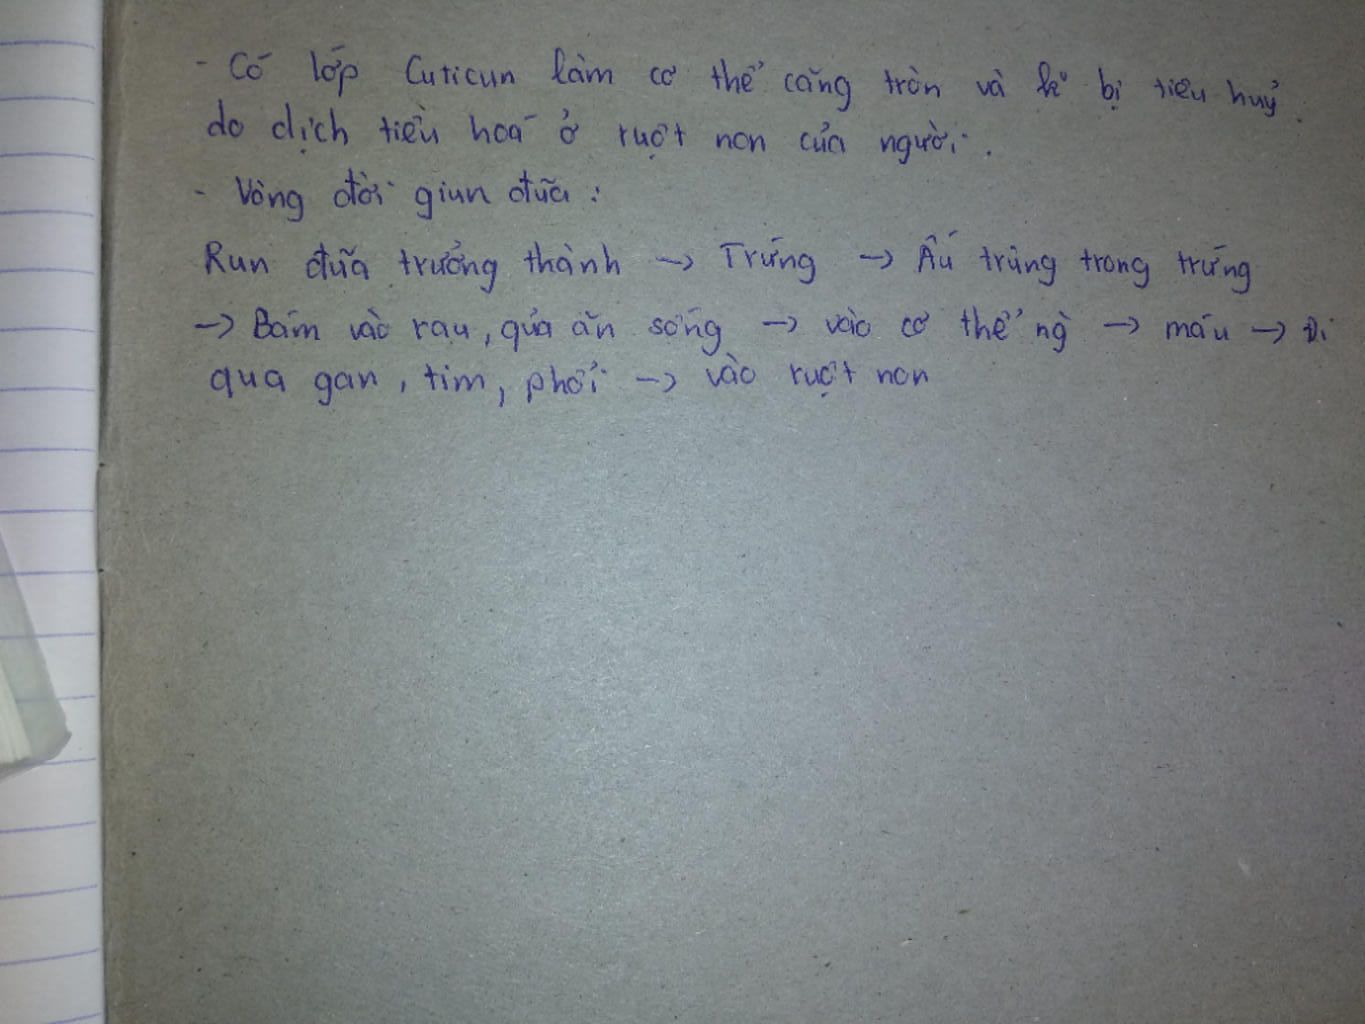 - Có lớp Cuticun làm cơ thể căng tròn và k° bị tiêu huỷ
do dịch tiêù hoá ở ruột non của người.
- Vòng đời giun đũa :
Run đũa trưởng thành → Trứng → Ấu trùng trong trứng
→ Bám vào rau, qủa ăn sống → vào cơ thể ng̀ → máu → Đi
qua gan, tim, phổi → vào ruột non